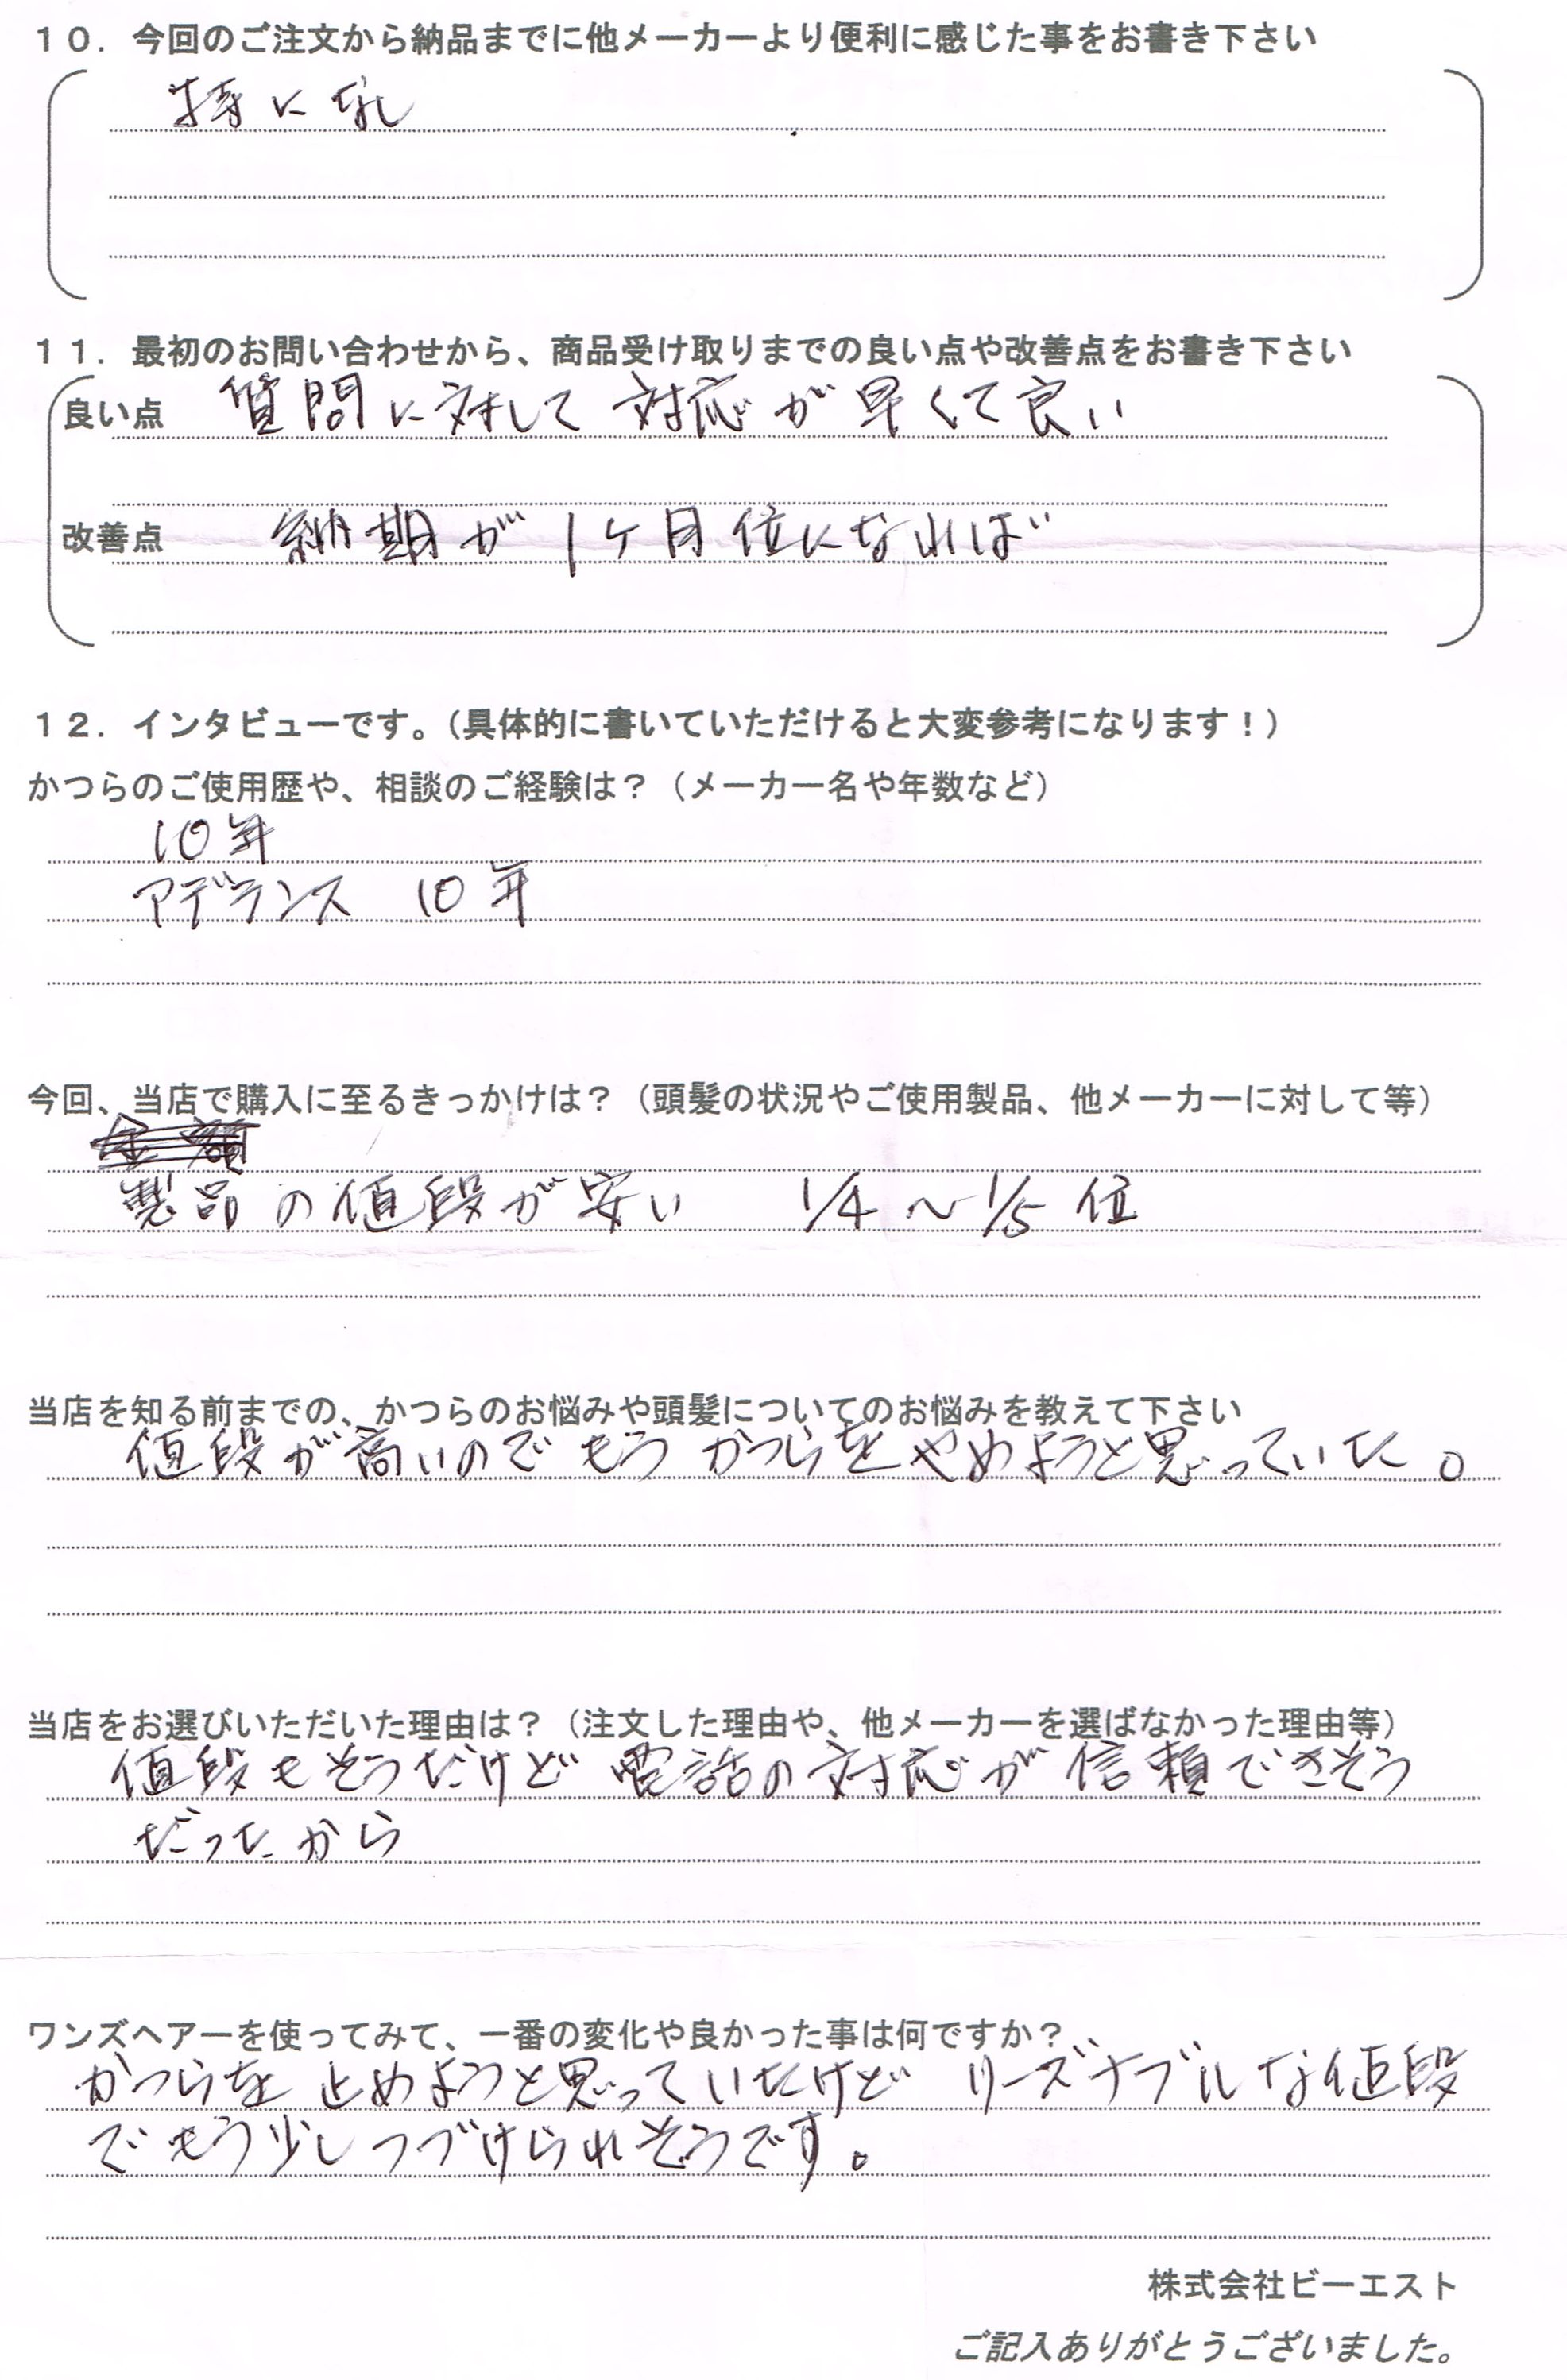 10. 今回のご注文から納品までに他メーカーより便利に感じた事をお書き下さい
特に なし
11. 最初のお問い合わせから、商品受け取りまでの良い点や改善点をお書き下さい
良い点 質問に対して 対応が早くて良い
改善点 納期が1ケ月位になれば
12. インタビューです。(具体的に書いていただけると大変参考になります!)
かつらのご使用歴や、相談のご経験は?(メーカー名や年数など)
10年
アデランス 10年
今回、当店で購入に至るきっかけは?(頭髪の状況やご使用製品、他メーカーに対して等)
製品の値段が安い 1/4〜1/5位
当店を知る前までの、かつらのお悩みや頭髪についてのお悩みを教えて下さい
値段が高いので もう かつらを やめようと思っていた。
当店をお選びいただいた理由は?(注文した理由や、他メーカーを選ばなかった理由等)
値段もそうだけど 電話の対応が信頼できそう
だったから
ワンズヘアーを使ってみて、一番の変化や良かった事は何ですか?
かつらを止めようと思っていたけど リーズナブルな値段
でもう少しつづけられそうです。
株式会社ビーエスト
ご記入ありがとうございました。